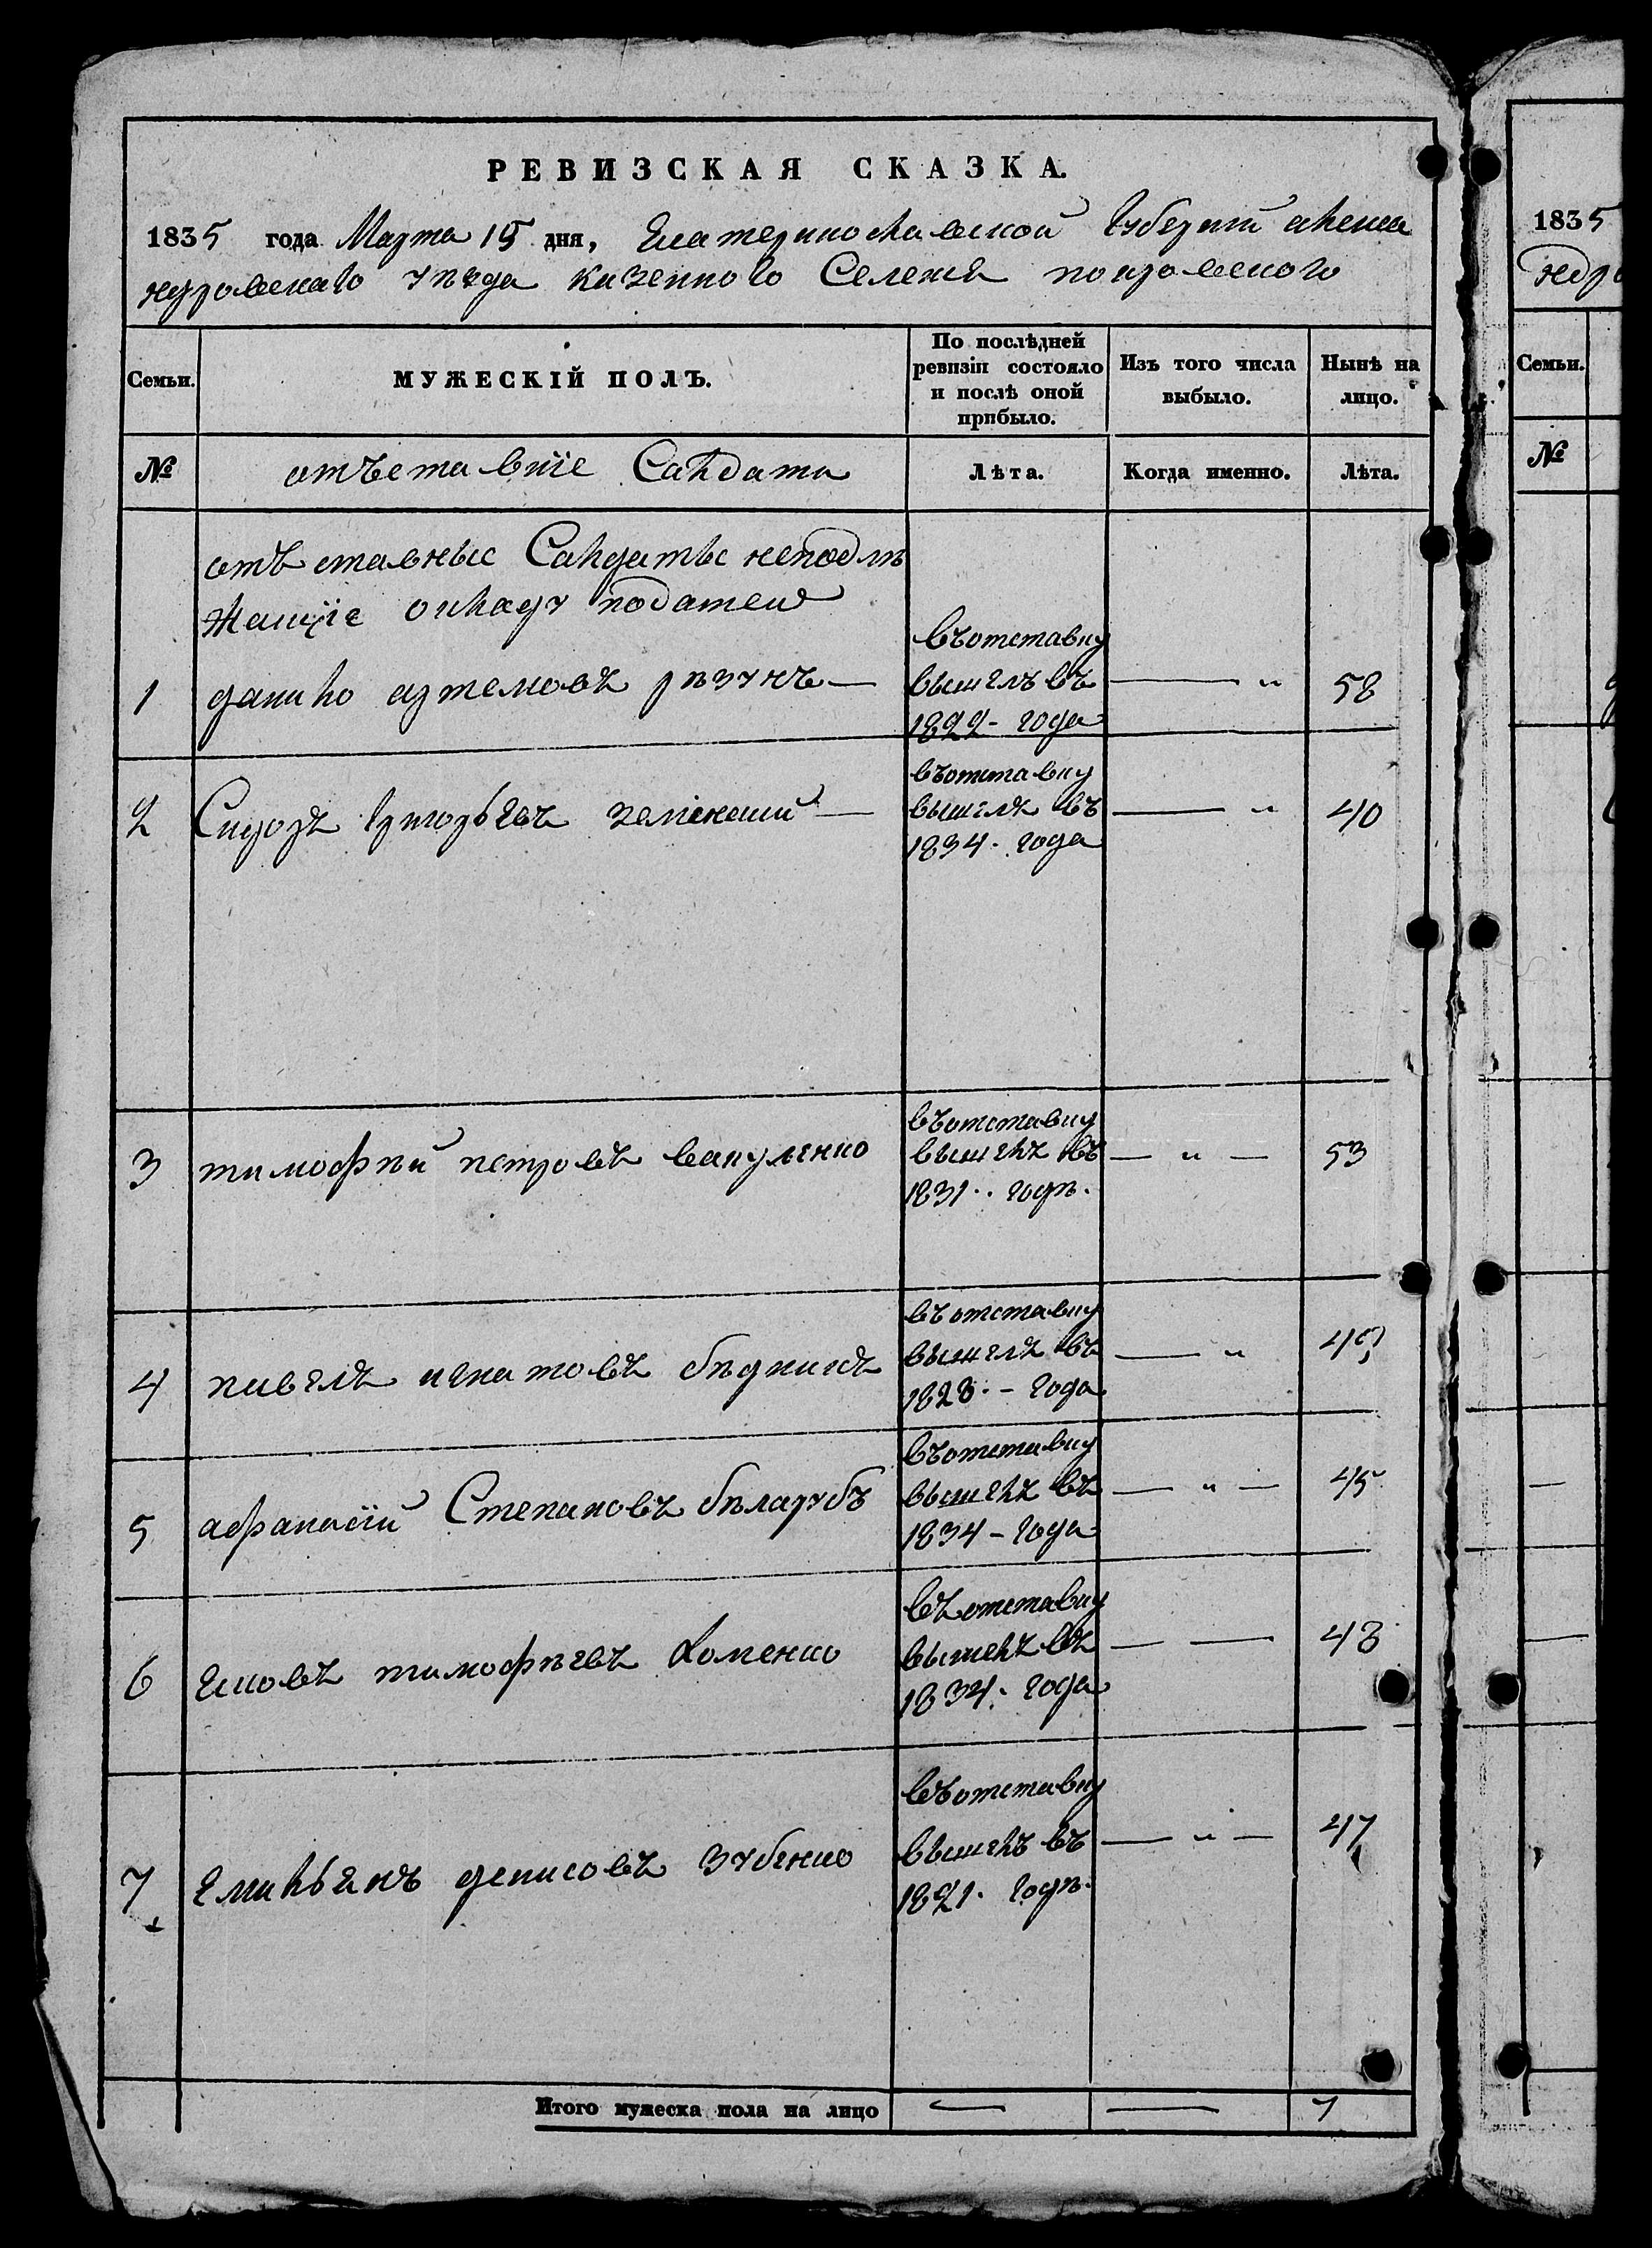 РЕВИЗСКАЯ СКАЗКА.
1835 года Марта 15 дня, Екатериносл­авской Губернии алекса
ндровскаго уѣзда казенного Селенія покровского
Семьи.
МУЖЕСКІЙ ПОЛЪ.
По послѣдней ревизіи состояло и послѣ оной прибыло.
Изъ того числа выбыло.
Нынѣ на лицо.
№
отъставніе Салдати
Лѣта.
Когда именно.
Лѣта.
отъ ставные Салдаты неподлѣ
жащіе окладу податей
1 данило артемовъ рѣзунъ —
въотставку
вышелъ въ
1822 - года
— " 58
2 Сидоръ Григорьевъ
въотставку
вышелъ въ
1834 . года
— " 40
3 тимофѣй петровъ вакуленко
въотставку
вышелъ въ
1831 . . годѣ.
— " — 53
4 павелъ игнатовъ бѣдникъ
въотставку
вышелъ въ
1828 . - года
— "
5 афанасій Степановъ бѣларубъ
въотставку
вышелъ въ
1834 - года
— " — 45
6 яковъ тимофѣевъ Хоменко
въ отставку
вышелъ въ
1834 . года
— — 48
7 емильянъ денисовъ Зубенко
въотставку
вышелъ въ
1821 . годѣ.
— " — 47
Итого мужеска пола на лицо — — 7
1835
ндро
Семьи.
№